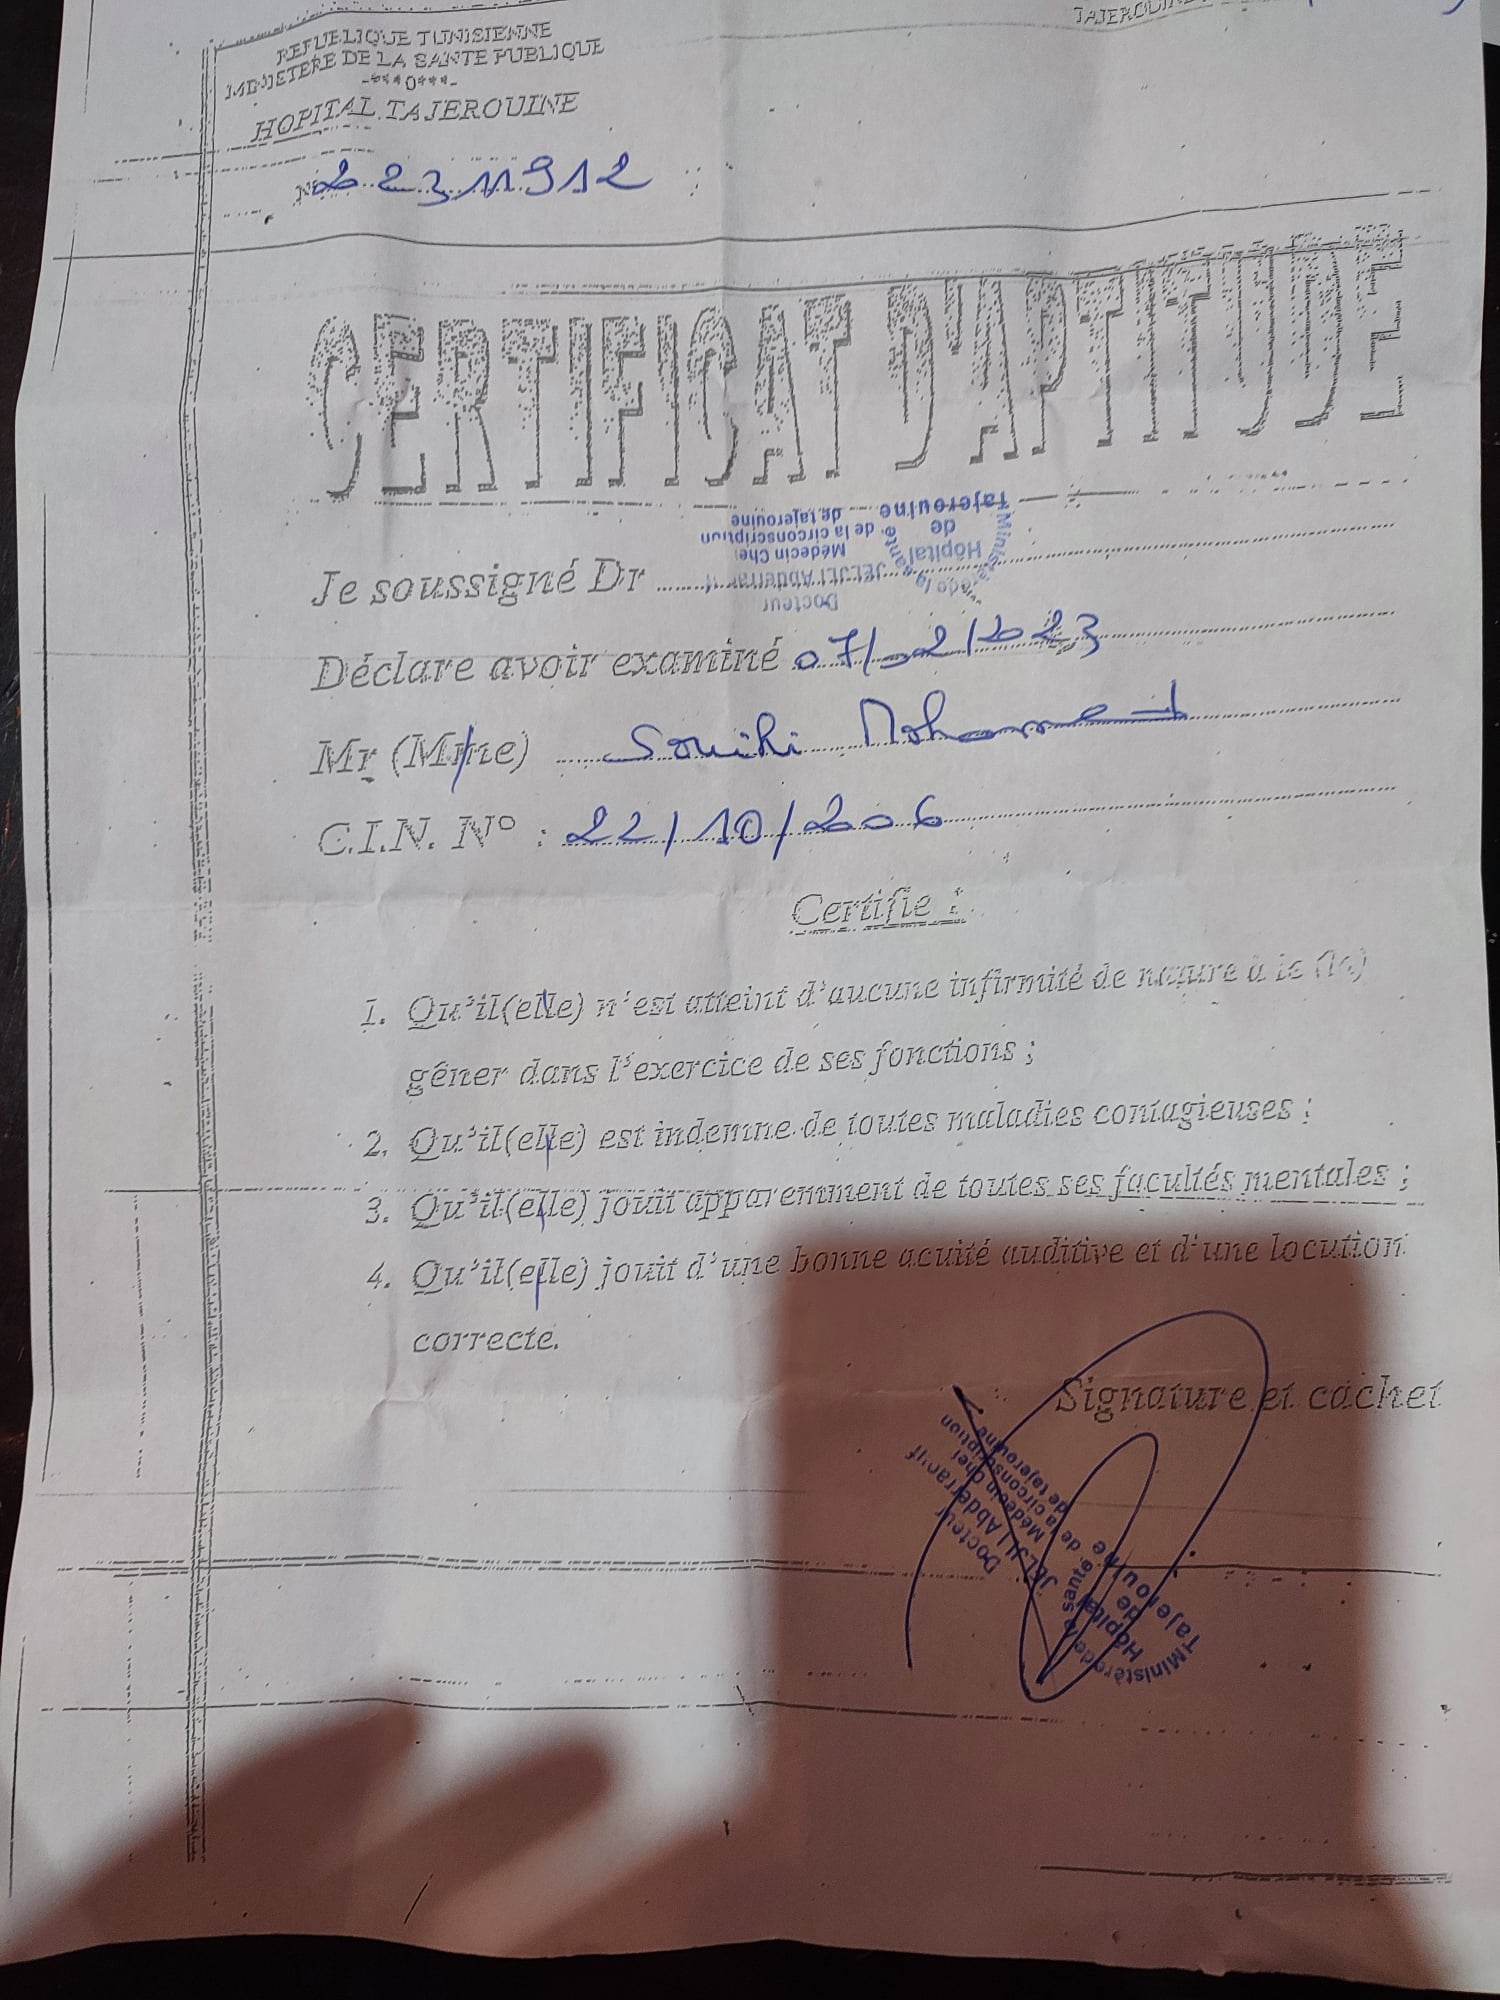 TAJEROUINE
REPUBLIQUE TUNISIENNE
MINISTERE DE LA SANTE PUBLIQUE
-***0***-
HOPITAL TAJEROUINE
N° 22311912
CERTIFICAT D'APTITUDE
Je soussigné Dr
Docteur
JELJLI Abderra
Médecin Chef
de la circonscription
de tajerouine
Ministère de la santé
Hôpital
de
Tajerouine
Déclare avoir examiné 07/02/2023
Mr (Mme) Souihi Mohamed
C.I.N. N° : 22/10/2006
Certifie :
1. Qu'il(elle) n'est atteint d'aucune infirmité de nature à le (la)
gêner dans l'exercice de ses fonctions ;
2. Qu'il(elle) est indemne de toutes maladies contagieuses ;
3. Qu'il(elle) jouit apparemment de toutes ses facultés mentales ;
4. Qu'il(elle) jouit d'une bonne acuité auditive et d'une locution
correcte.
Signature et cachet
Docteur
JELJLI Abderra
Médecin Chef
de la circonscription
de tajerouine
Ministère de la santé
Hôpital
de
Tajerouine